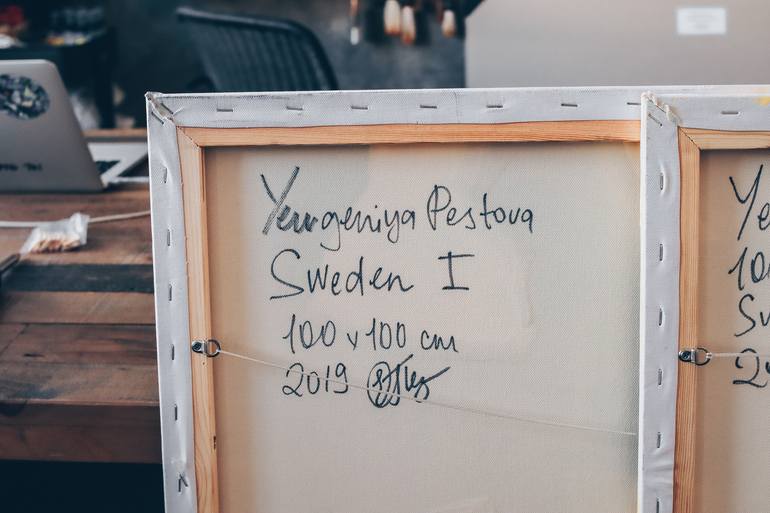 Yewgeniya Pestova
Sweden I
100 x 100 cm
2019